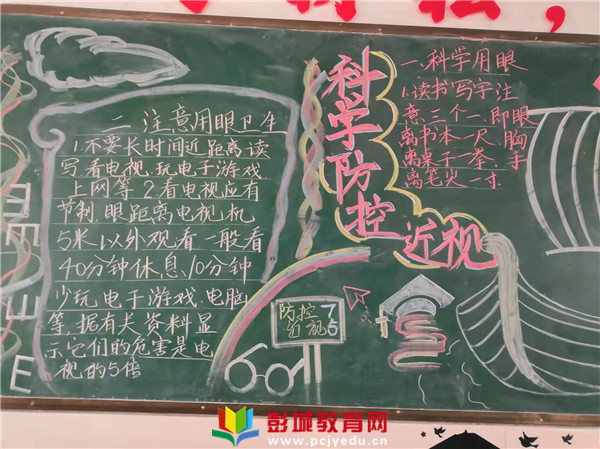 科学防控
近视
一.科学用眼
1.读书写字注
意,三个一,即眼
离书本一尺,胸
离桌子一拳,手
离笔尖一寸.
二.注意用眼卫生
1.不要长时间近距离读
写.看电视.玩电子游戏
上网等.2.看电视应有
节制.眼距离电视机
5米以外观看一般看
40分钟休息10分钟
少玩电子游戏.电脑
等.据有关资料显
示它们的危害是电
视的5倍
防控
近视
彭城教育网
www.pcjyedu.cn